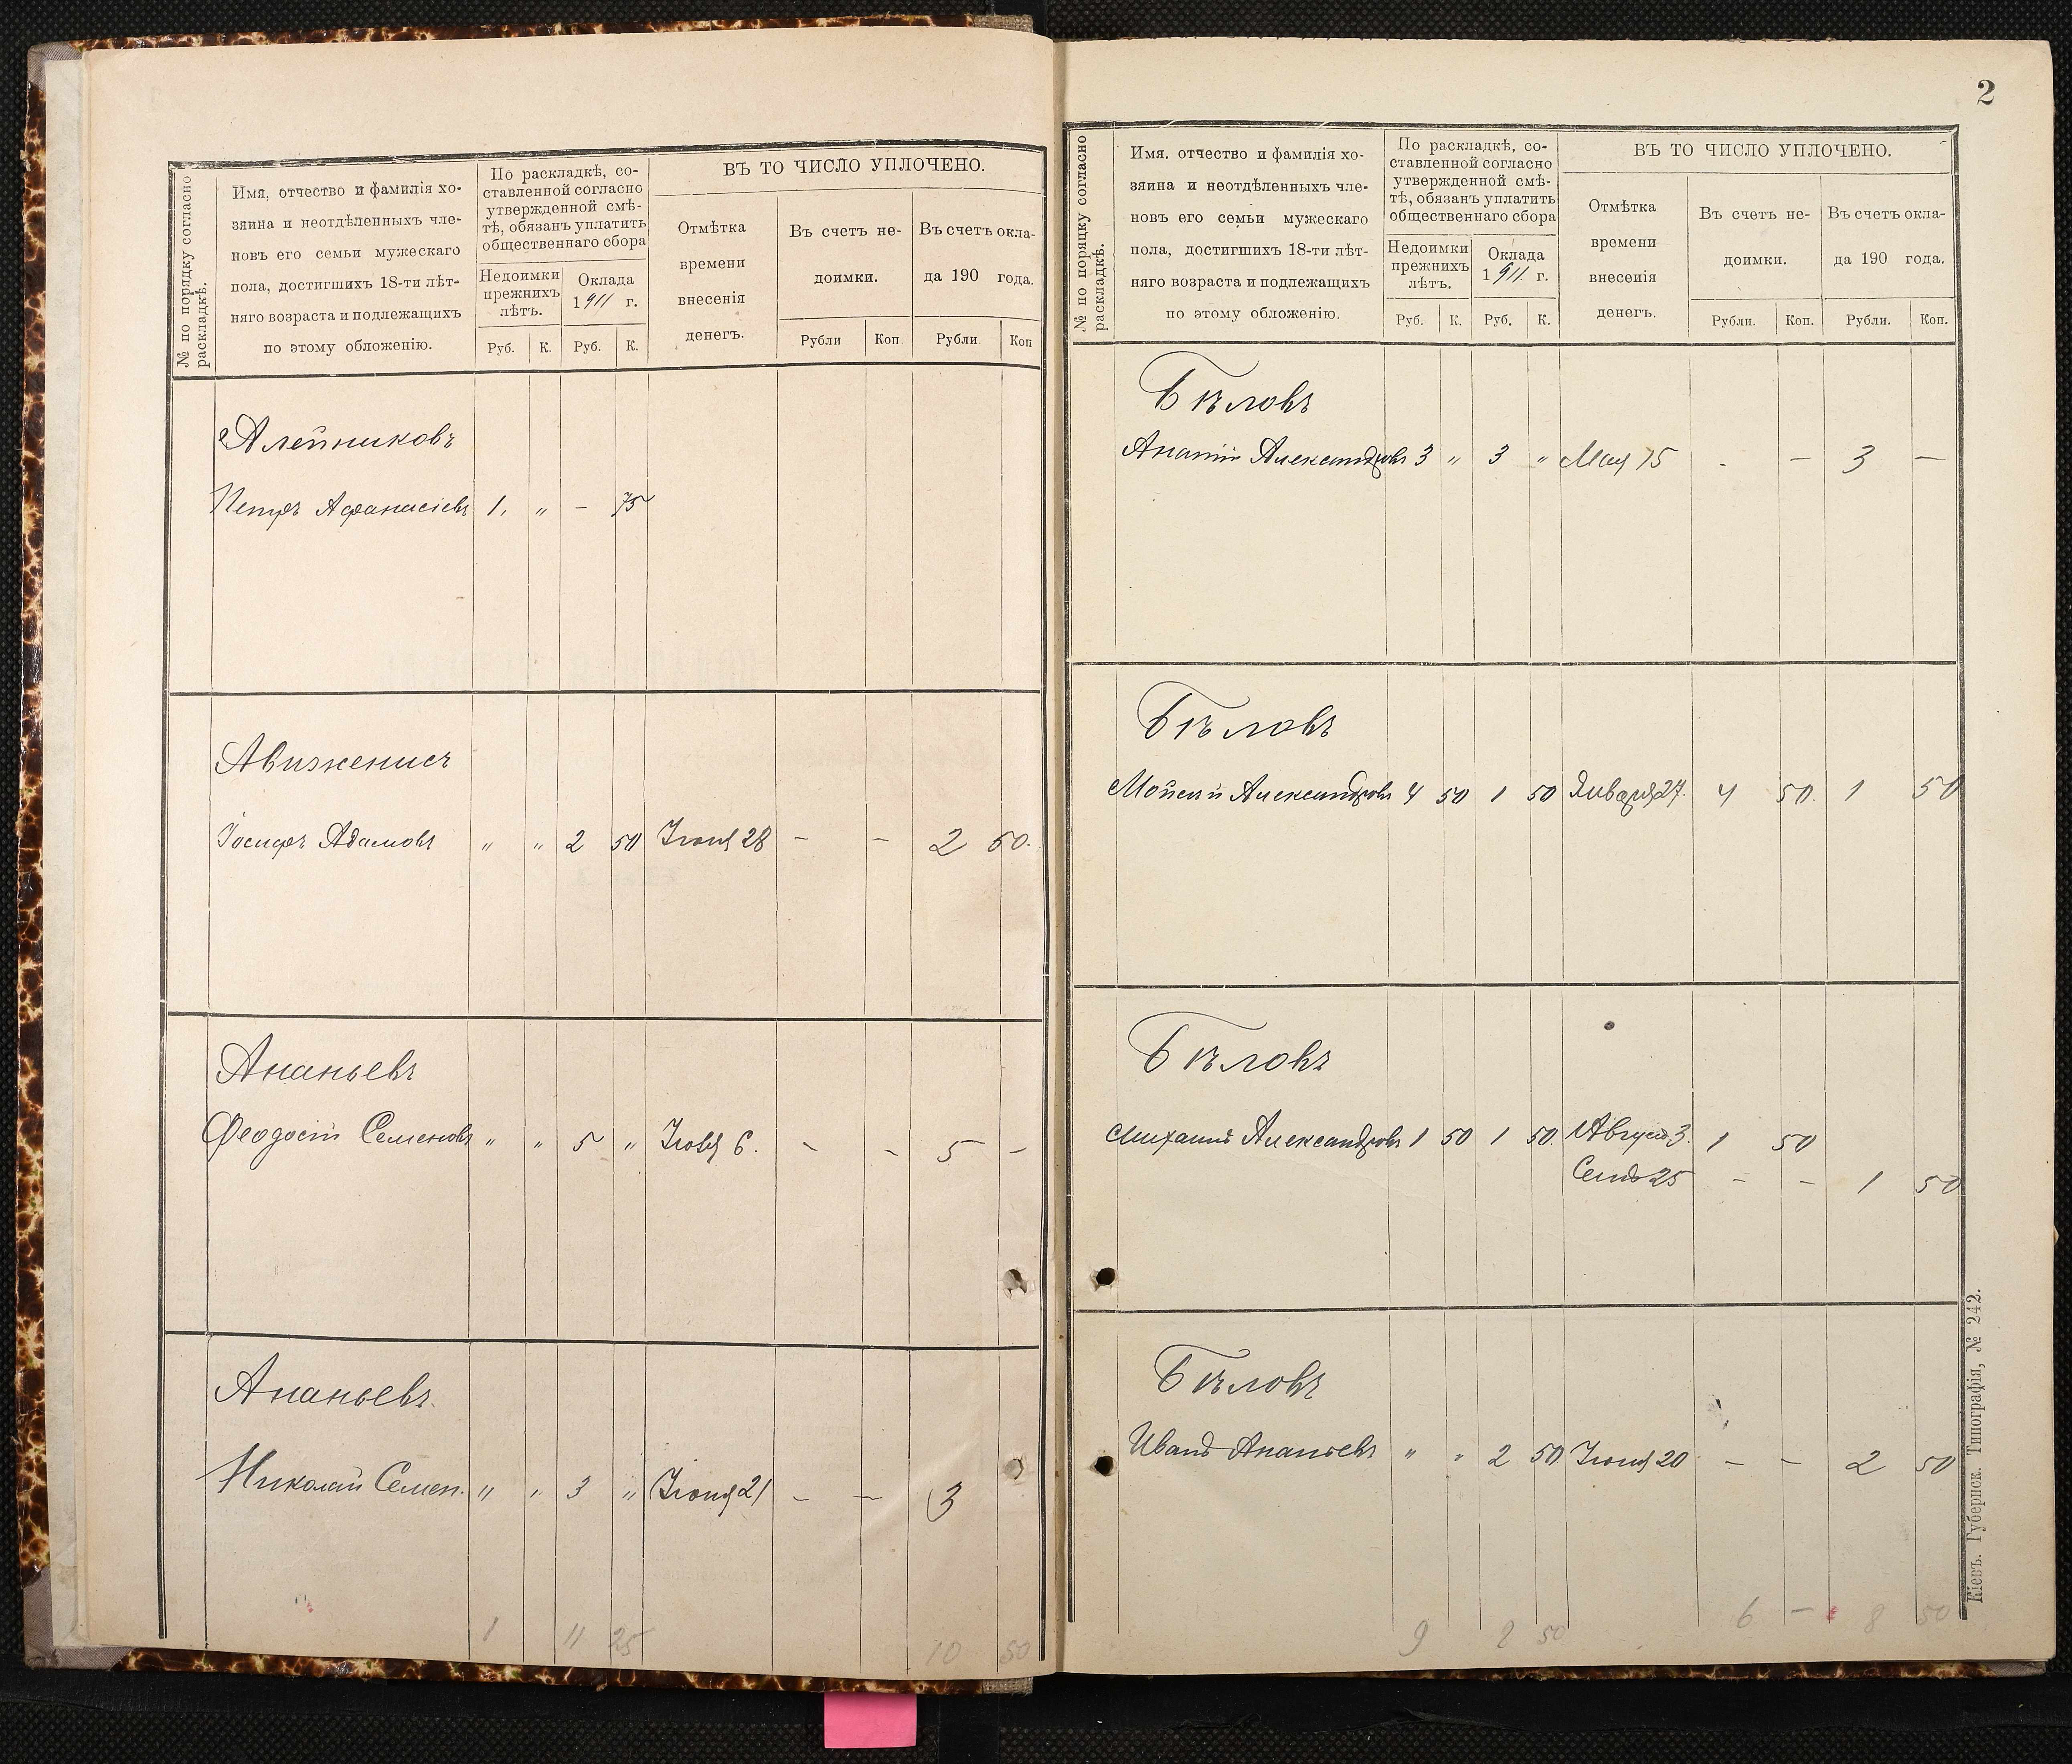 № по порядку согласно
раскладкѣ.
Имя, отчество и фамилія хо-
зяина и неотдѣленныхъ чле-
новъ его семьи мужескаго
пола, достигшихъ 18-ти лѣт-
няго возраста и подлежащихъ
по этому обложенію.
По раскладкѣ, со-
ставленной согласно
утвержденной смѣ-
тѣ, обязанъ уплатить
общественнаго сбора
Недоимки
прежнихъ
лѣтъ.
Оклада
1911 г.
Руб. К. Руб. К.
ВЪ ТО ЧИСЛО УПЛОЧЕНО.
Отмѣтка
времени
внесенія
денегъ.
Въ счетъ не-
доимки.
Въ счетъ окла-
да 190 года.
Рубли Коп. Рубли. Коп
Алейниковъ
Петръ Афанасіевъ 1. „ – 75
Авиженисъ
Іосифъ Адамовъ „ „ 2 50 Іюня 28 – – 2 50.
Ананьевъ
Феодосій Семеновъ „ „ 5 „ Іюля 6. – – 5 –
Ананьевъ
Николай Семен. „ „ 3 „ Іюня 21 – – 3
1 11 25 10 50
2
№ по порядку согласно
раскладкѣ.
Имя. отчество и фамилія хо-
зяина и неотдѣленныхъ чле-
новъ его семьи мужескаго
пола, достигшихъ 18-ти лѣт-
няго возраста и подлежащихъ
по этому обложенію.
По раскладкѣ, со-
ставленной согласно
утвержденной смѣ-
тѣ, обязанъ уплатить
общественнаго сбора
Недоимки
прежнихъ
лѣтъ.
Оклада
1911 г.
Руб. К. Руб. К.
ВЪ ТО ЧИСЛО УПЛОЧЕНО.
Отмѣтка
времени
внесенія
денегъ.
Въ счетъ не-
доимки.
Въ счетъ окла-
да 190 года.
Рубли. Коп. Рубли. Коп.
Бѣловъ
Ананій Александровъ 3 „ 3 „ Мая 15 – – 3 –
Бѣловъ
Мойсей Александровъ 4 50 1 50 Января 27. 4 50. 1 50
Бѣловъ
Михаилъ Александровъ 1 50 1 50. Август 3. 1 50
Сент 25 – – 1 50
Бѣловъ
Иванъ Ананьевъ „ „ 2 50 Іюня 20 – – 2 50
9 8 50 6 – 8 50
Кіевъ. Губернск. Типографія, № 242.